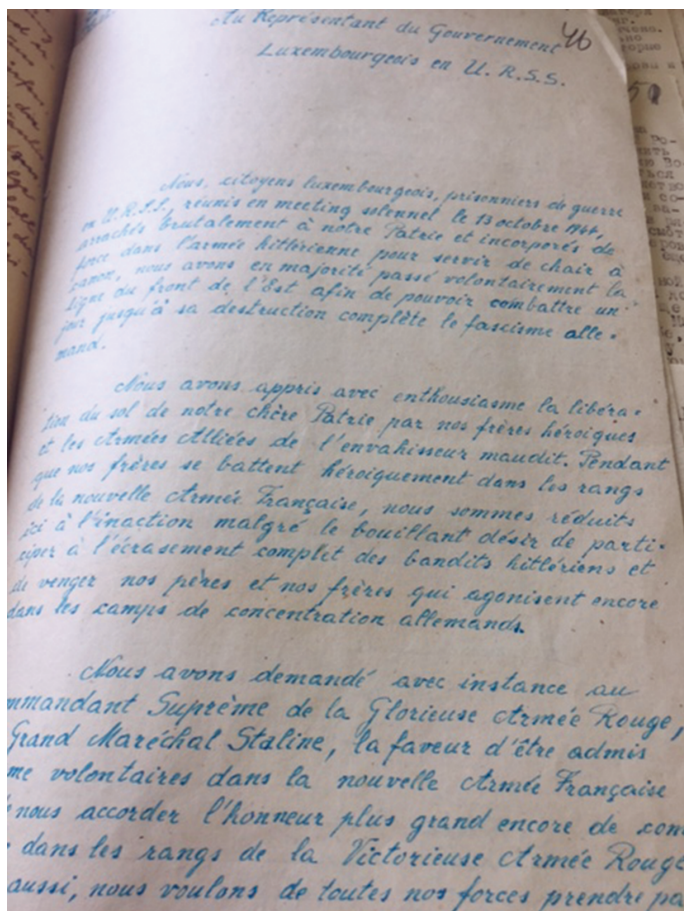 Au Représentant du Gouvernement
46
Luxembourgeois en U.R.S.S.
Nous, citoyens luxembourgeois, prisonniers de guerre
en U.R.S.S., réunis en meeting solennel le 13 octobre 1944,
arrachés brutalement à notre Patrie et incorporés de
force dans l'armée hitlérienne pour servir de chair à
canon, nous avons en majorité passé volontairement la
ligne du front de l'Est afin de pouvoir combattre un
jour jusqu'à sa destruction complète le fascisme alle-
mand.
Nous avons appris avec enthousiasme la libéra-
tion du sol de notre chère Patrie par nos frères héroïques
et les Armées Alliées de l'envahisseur maudit. Pendant
que nos frères se battent héroïquement dans les rangs
de la nouvelle Armée Française, nous sommes réduits
ici à l'inaction malgré le bouillant désir de parti-
ciper à l'écrasement complet des bandits hitlériens et
de venger nos pères et nos frères qui agonisent encore
dans les camps de concentration allemands.
Nous avons demandé avec instance au
mmandant Suprème de la Glorieuse Armée Rouge,
Grand Maréchal Staline, la faveur d'être admis
me volontaires dans la nouvelle Armée Française
nous accorder l'honneur plus grand encore de com
dans les rangs de la Victorieuse Armée Rouge
aussi, nous voulons de toutes nos forces prendre pa